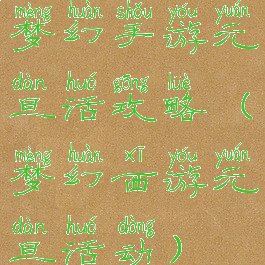 mèng huàn shǒu yóu yuán
梦幻手游元
dàn huó gōng lüè
旦活攻略（
mèng huàn xī yóu yuán
梦幻西游元
dàn huó dòng
旦活动）